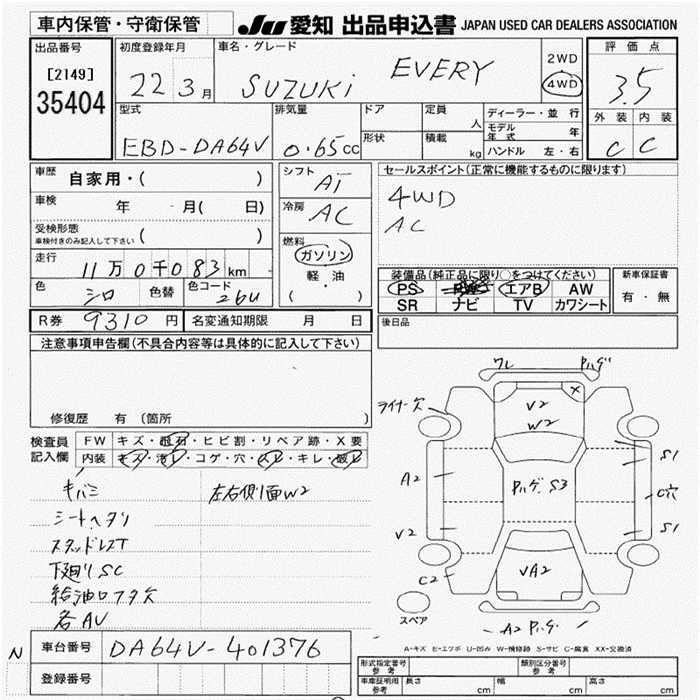 車内保管・守衛保管
JU 愛知 出品申込書 JAPAN USED CAR DEALERS ASSOCIATION
出品番号
[2149]
35404
初度登録年月
22 3月
車名・グレード
SUZUKi EVERY
2WD
4WD
評価点
3.5
外装 内装
C C
型式
EBD-DA64V
排気量
0.65cc
ドア
形状
定員
人
積載
kg
ディーラー・並行
モデル年式 年
ハンドル 左・右
車歴 自家用・( )
車検 年 月( 日)
受検形態
車検付きのみ記入して下さい ( )
走行 11万0千083km
色 シロ 色替 色コード 26U
シフト AT
冷房 AC
燃料
ガソリン
軽・油
( )
セールスポイント(正常に機能するものに限ります)
4WD
AC
装備品(純正品に限り○をつけてください)
PS PW エアB AW
SR ナビ TV カワシート
新車保証書
有・無
R券 9310円 名変通知期限 月 日
後日品
注意事項申告欄(不具合内容等は具体的に記入して下さい)
修復歴 有 (箇所 )
検査員記入欄
FW キズ・飛石・ヒビ割・リペア跡・X要
内装 キズ・汚レ・コゲ・穴・スレ・キレ・破レ
キバミ
シートヘタリ
スタッドレスT
下廻りSC
給油口フタ欠
各AV
左右側面W2
ワレ ハゲ
ライナー欠
X
V2
W2
A2
ハゲ S3
S1
C穴
V2
S1
C2
VA2
スペア
A2 ハゲ
A-キズ E-エクボ U-凹み W-補修跡 S-サビ C-腐食 XX-交換済
N
車台番号 DA64V-401376
登録番号
形式指定番号
参考
類別区分番号
参考
車庫証明用
参考
長さ cm 幅 cm 高さ cm